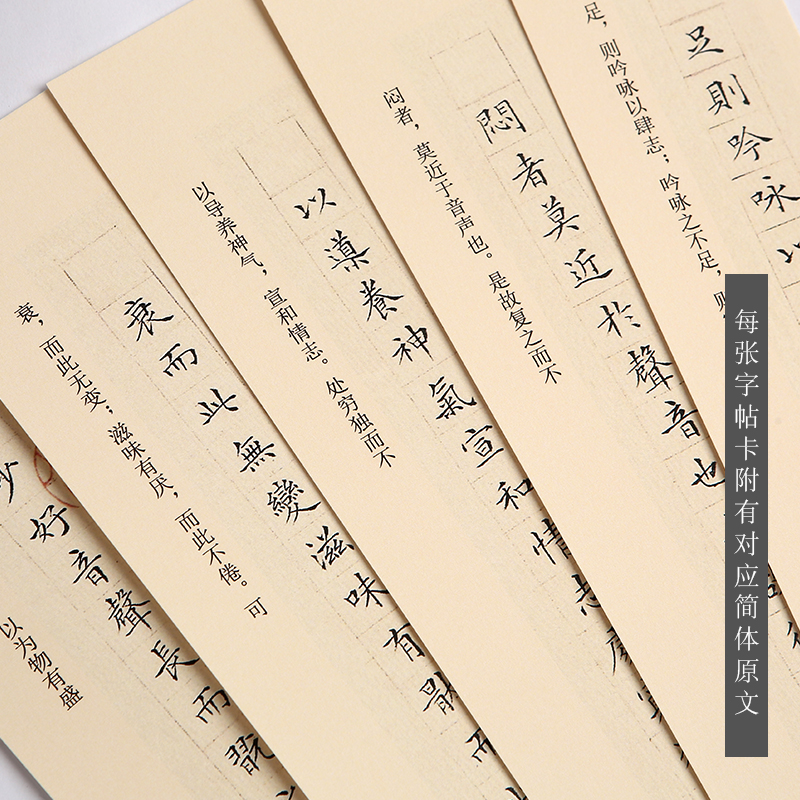 好音聲長而翫
以为物有盛
衰而此無變滋味有
衰，而此无变；滋味有厌，而此不倦。可
以導養神氣宣和情志處
以导养神气，宣和情志。处穷独而不
悶者莫近於聲音也
闷者，莫近于音声也。是故复之而不
足則吟咏以
足，则吟咏以肆志；吟咏之不足，则
每张字帖卡附有对应简体原文